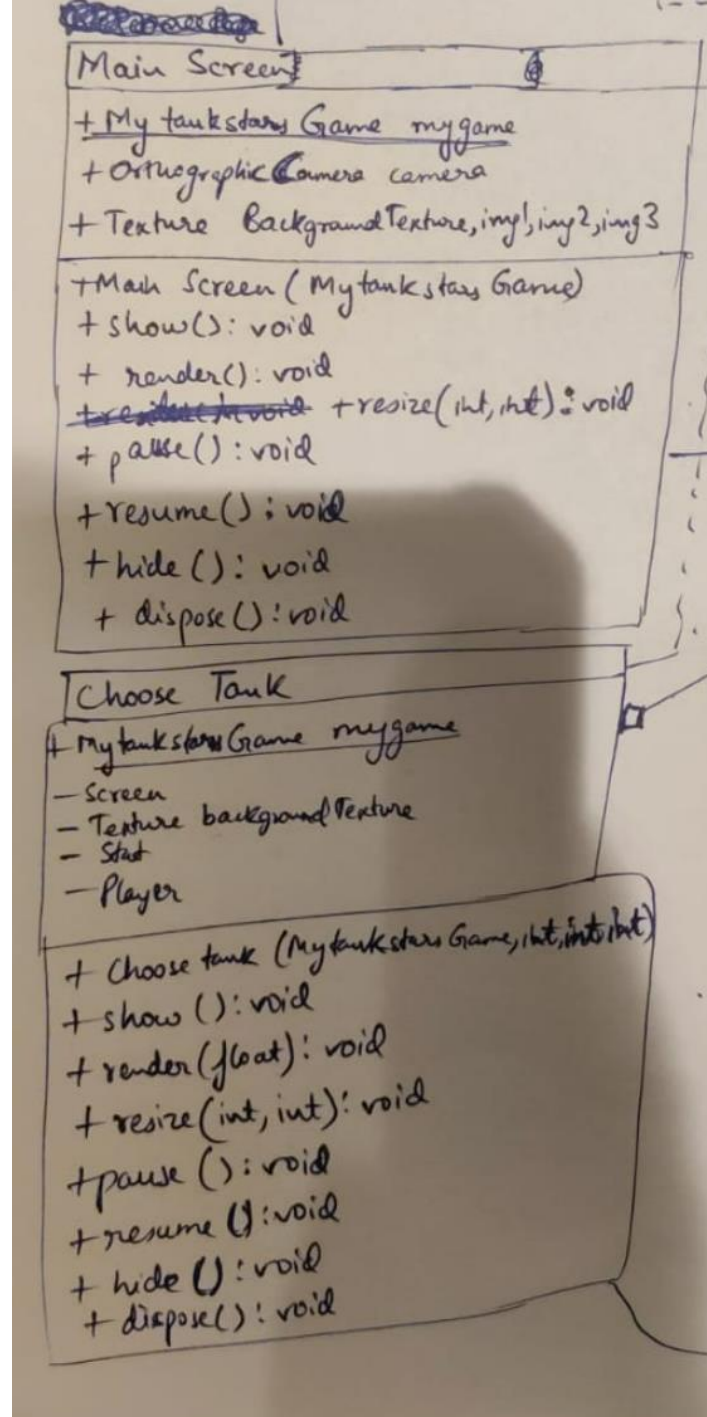 Main Screen
+ My tankstars Game mygame
+ Orthographic Camera camera
+ Texture BackgroundTexture, img1, img2, img3
+ Main Screen (Mytankstars Game)
+ show(): void
+ render(): void
+ resize(int, int): void
+ pause(): void
+ resume(): void
+ hide(): void
+ dispose(): void
Choose Tank
+ Mytankstars Game mygame
- Screen
- Texture backgroundTexture
- Start
- Player
+ Choose tank (Mytankstars Game, int, int, int)
+ show(): void
+ render(float): void
+ resize(int, int): void
+ pause(): void
+ resume(): void
+ hide(): void
+ dispose(): void